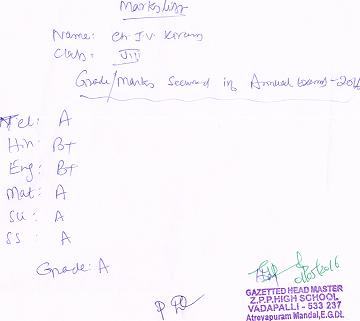 Marks list
Name: Ch. J.V. Kiran
Class: VIII
Grade/Marks Secured in Annual Exams - 2016
Tel: A
Hin: B+
Eng: B+
Mat: A
Sci: A
SS: A
Grade: A
GAZETTED HEAD MASTER
Z.P.P.HIGH SCHOOL
VADAPALLI - 533 237
Atreyapuram Mandal, E.G.Dt.